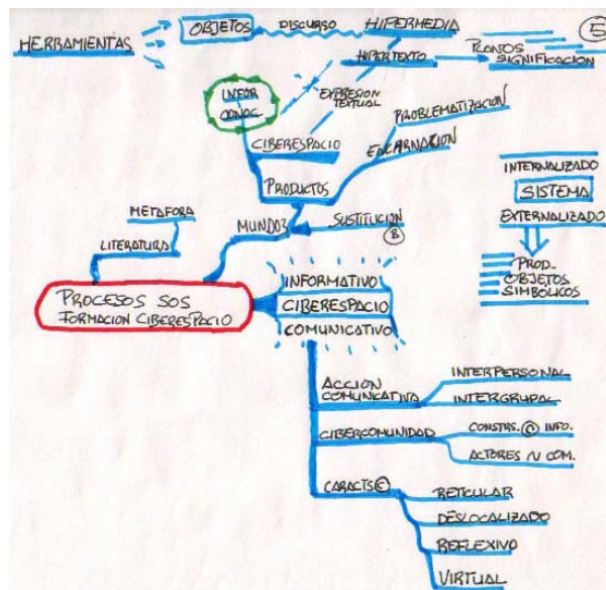 HERRAMIENTAS
OBJETOS
DISCURSO
HIPERMEDIA
5
HIPERTEXTO
PLANOS
SIGNIFICACION
INFOR
CONOC
EXPRESION
TEXTUAL
CIBERESPACIO
PROBLEMATIZACION
ENCARNACION
PRODUCTOS
METAFORA
LITERATURA
MUNDO3
SUSTITUCION
B
INTERNALIZADO
SISTEMA
EXTERNALIZADO
PROD.
OBJETOS
SIMBÓLICOS
PROCESOS SOS
FORMACION CIBERESPACIO
INFORMATIVO
CIBERESPACIO
COMUNICATIVO
ACCION
COMUNICATIVA
INTERPERSONAL
INTERGRUPAL
CIBERCOMUNIDAD
CONSTRS. INFO.
ACTORES ~ COM.
CARACTS
RETICULAR
DESLOCALIZADO
REFLEXIVO
VIRTUAL